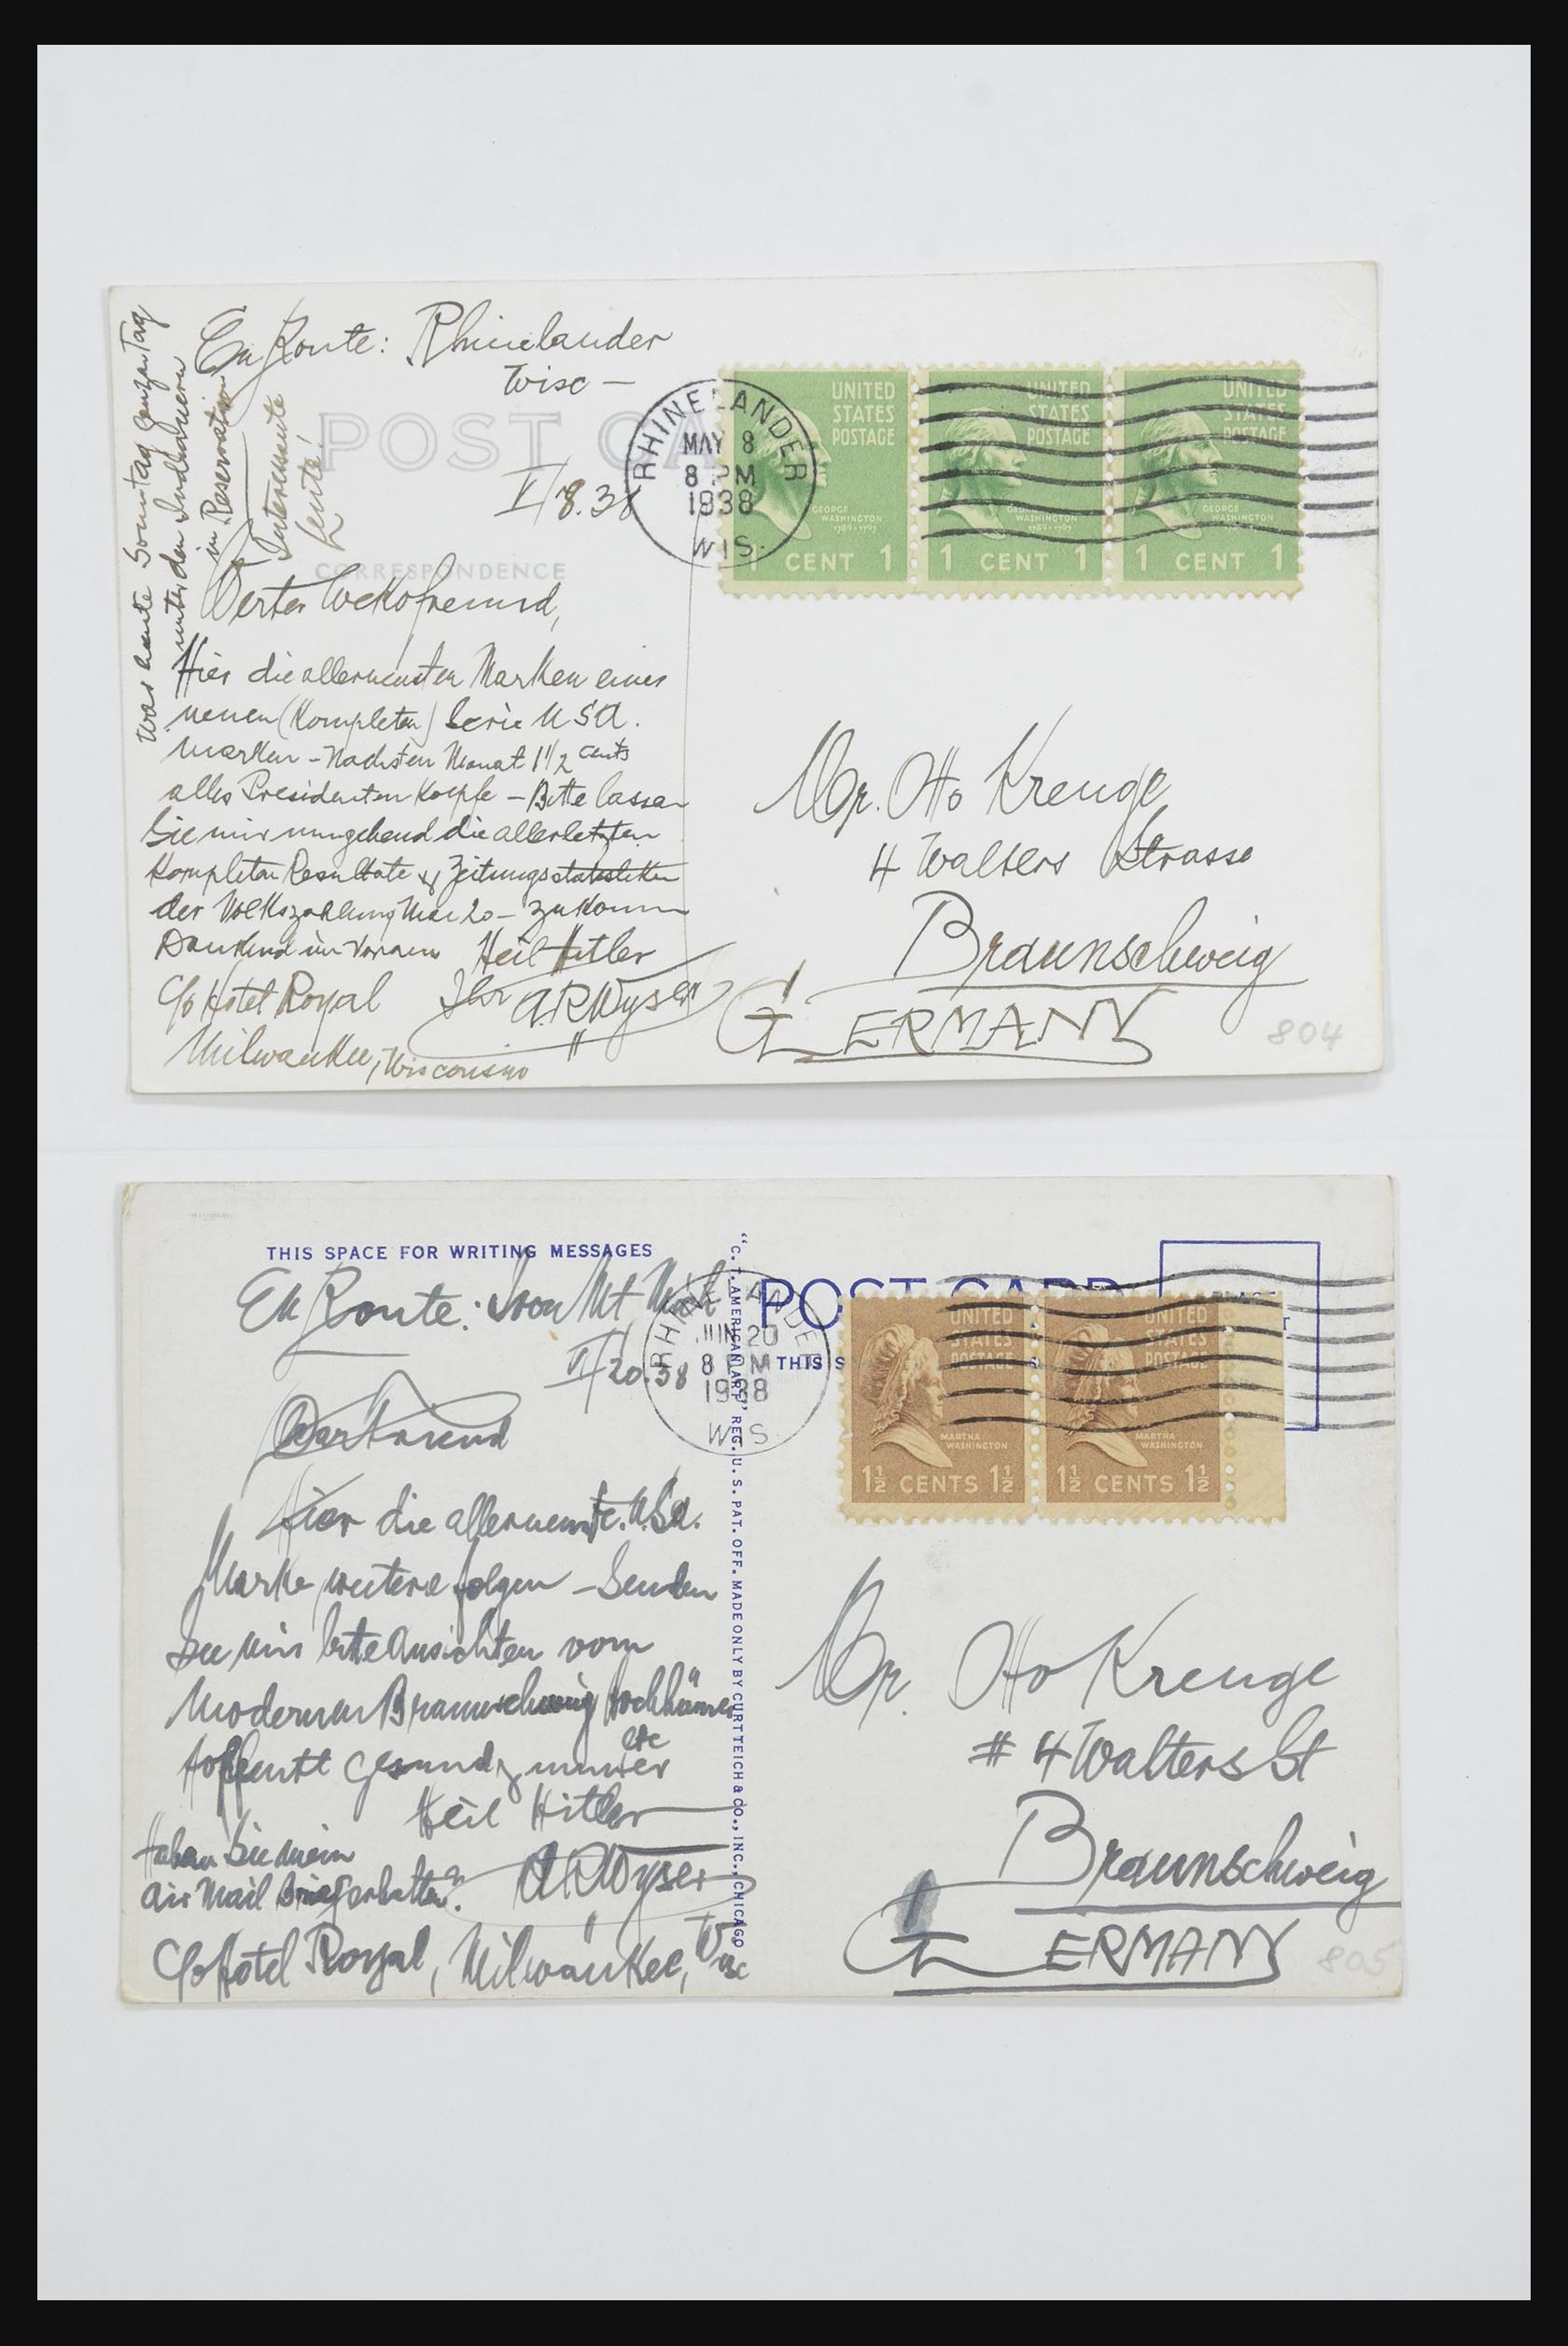 En Route: Rhinelander
Wisc —
POST CA
V/8.38
CORRESPONDENCE
RHINELANDER
MAY 8
8 PM
1938
WIS.
UNITED
STATES
POSTAGE
GEORGE
WASHINGTON
1789-1797
1 CENT 1
UNITED
STATES
POSTAGE
GEORGE
WASHINGTON
1789-1797
1 CENT 1
UNITED
STATES
POSTAGE
GEORGE
WASHINGTON
1789-1797
1 CENT 1
War heute Sonntag ganzen Tag
unter den Indianern
in Reservation
Interessante
Leute!
Werter
Hier die allerneusten Marken einer
neuen (Kompleten) Serie USA.
Marken - Nachsten Monat 1 1/2 cents
alles Presidenten Koepfe - Bitte lassen
Sie mir umgehend die allerletzten
Kompleten Resultate & Zeitungs
der Volkszahlung Mai 20 - zukommen
Dankend im Voraus Heil Hitler
Ihr A.R. Wyser
C/o Hotel Royal
Milwaukee, Wisconsin
Mr. Otto Krenge
4 Walters Strasse
Braunschweig
GERMANY
804
THIS SPACE FOR WRITING MESSAGES
En Route: Iron Mt Mich
VI/20.38
JUN 20
8 PM
1938
WIS.
POST CARD
THIS S
UNITED
STATES
POSTAGE
MARTHA
WASHINGTON
1½ CENTS 1½
UNITED
STATES
POSTAGE
MARTHA
WASHINGTON
1½ CENTS 1½
"C. T. AMERICAN ART" REG. U. S. PAT. OFF. MADE ONLY BY CURT TEICH & CO., INC., CHICAGO
Hier die allerneuste U.S.A.
Marke, weitere folgen - Senden
Sie mir bitte Ansichten vom
Modernen Braunschweig Hochhäuser
etc
Hoffentl gesund & munter
Heil Hitler
Haben Sie mein
Air Mail Brief erhalten?
A.R. Wyser
C/o Hotel Royal, Milwaukee, Wisc
Mr. Otto Krenge
# 4 Walters St
Braunschweig
GERMANY
805